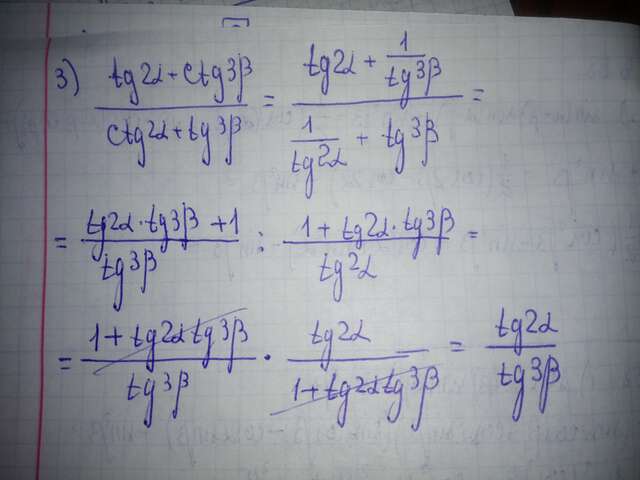 3) (tg2α + ctg3β)/(ctg2α + tg3β) = (tg2α + 1/tg3β)/(1/tg2α + tg3β) =
= (tg2α · tg3β + 1)/tg3β : (1 + tg2α · tg3β)/tg2α =
= (1 + tg2α tg3β)/tg3β · tg2α/(1 + tg2α tg3β) = tg2α/tg3β